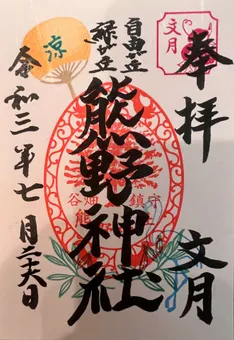 奉拝
文月
文月
自由が丘
緑が丘
熊野神社
谷畑 鎮守
熊
涼
令和三年七月二十六日